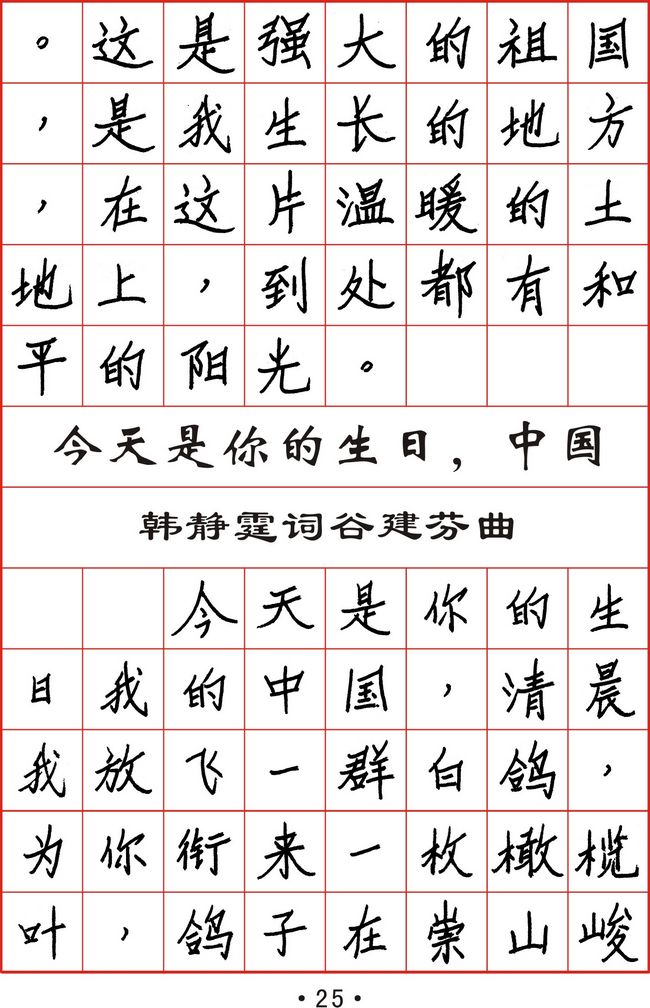 。这是强大的祖国
，是我生长的地方
，在这片温暖的土
地上，到处都有和
平的阳光。
今天是你的生日，中国
韩静霆词谷建芬曲
今天是你的生
日我的中国，清晨
我放飞一群白鸽，
为你衔来一枚橄榄
叶，鸽子在崇山峻
·25·